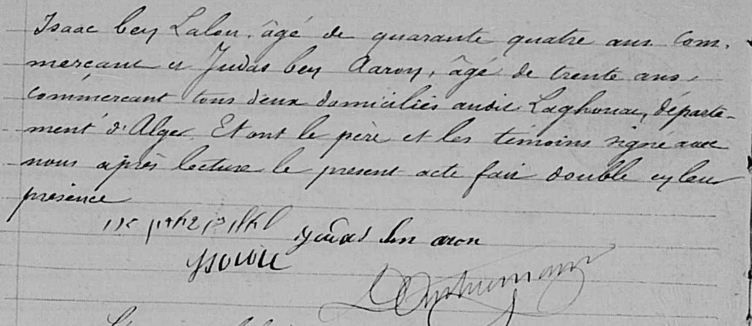 Isaac ben Lalou, âgé de quarante quatre ans com.
merçant et Judas ben Aaron, âgé de trente ans,
commerçant tous deux domiciliés audit Laghouat, départe-
ment d'Alger. Et ont le père et les témoins signé avec
nous après lecture le présent acte fait double en leur
présence
ben aron